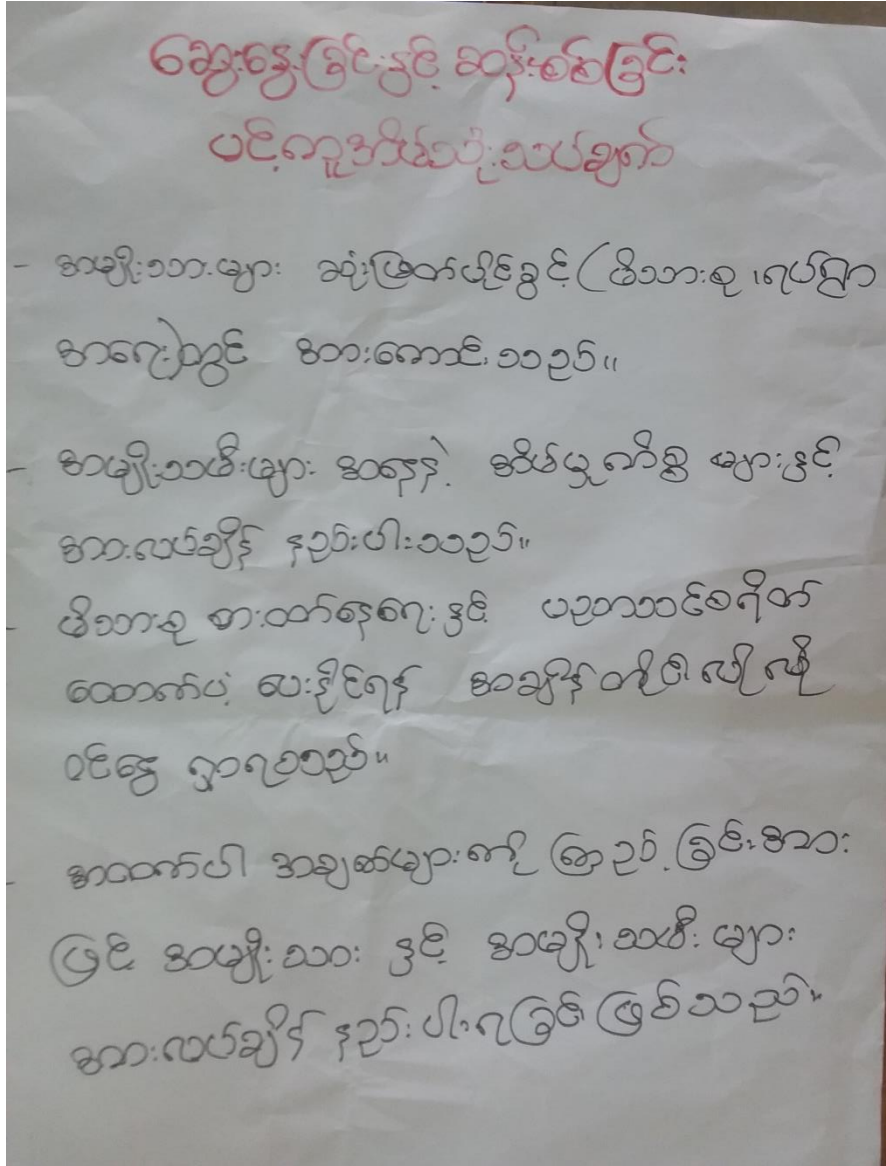 ဆွေးနွေးခြင်းနှင့် ဆန်းစစ်ခြင်း
ပင့်ကူအိမ်သုံးသပ်ချက်
- အမျိုးသားများ ဆုံးဖြတ်ပိုင်ခွင့် (မိသားစု၊ ရပ်ရွာ
အရေး)တွင် အားကောင်းသည်။
- အမျိုးသမီးများ အနေနဲ့ အိမ်မှုကိစ္စ များနှင့်
အားလပ်ချိန် နည်းပါးသည်။
- မိသားစု စားဝတ်နေရေးနှင့် ပညာသင်စရိတ်
ထောက်ပံ့ ပေးနိုင်ရန် အချိန်
ဝင်ငွေ ရှာရသည်။
- အထက်ပါ အချက်များကို ကြည့်ခြင်းအား
ဖြင့် အမျိုးသား နှင့် အမျိုးသမီး များ
အားလပ်ချိန် နည်းပါးရခြင်း ဖြစ်သည်။